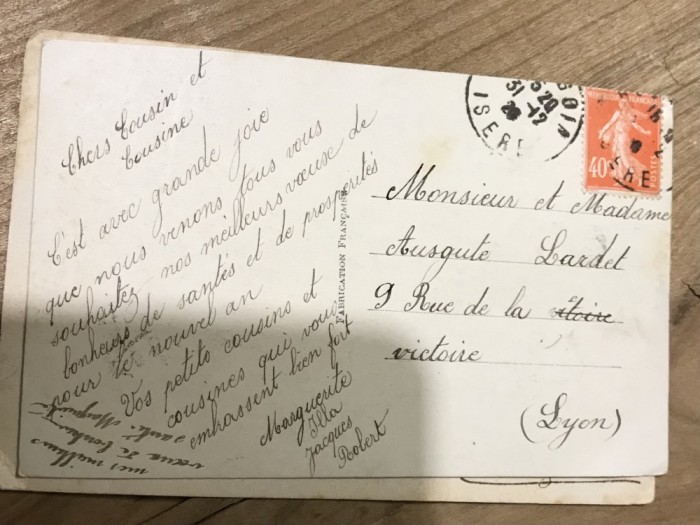 Chers Cousin et
Cousine
C'est avec grande joie
que nous venons tous vous
souhaiter nos meilleurs vœuse de
bonheurs de santés et de prospérités
pour le nouvel an
Vos petits cousins et
cousines qui vous
embrassent bien fort
Marguerite
Illa
Jacques
Robert
mes meilleurs
vœux de bonheur
santé. Marguerite
FABRICATION FRANÇAISE
31-12
ISERE
40
POSTES
Monsieur et Madame
Ausgute Lardet
9 Rue de la
victoire
(Lyon)